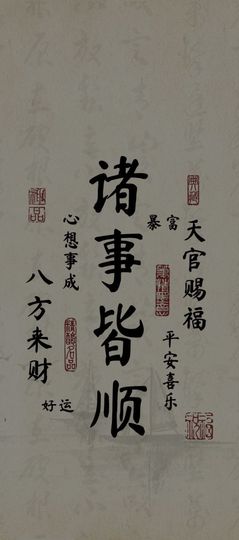 诸事皆顺
天官赐福
暴富
平安喜乐
心想事成
八方来财
好运